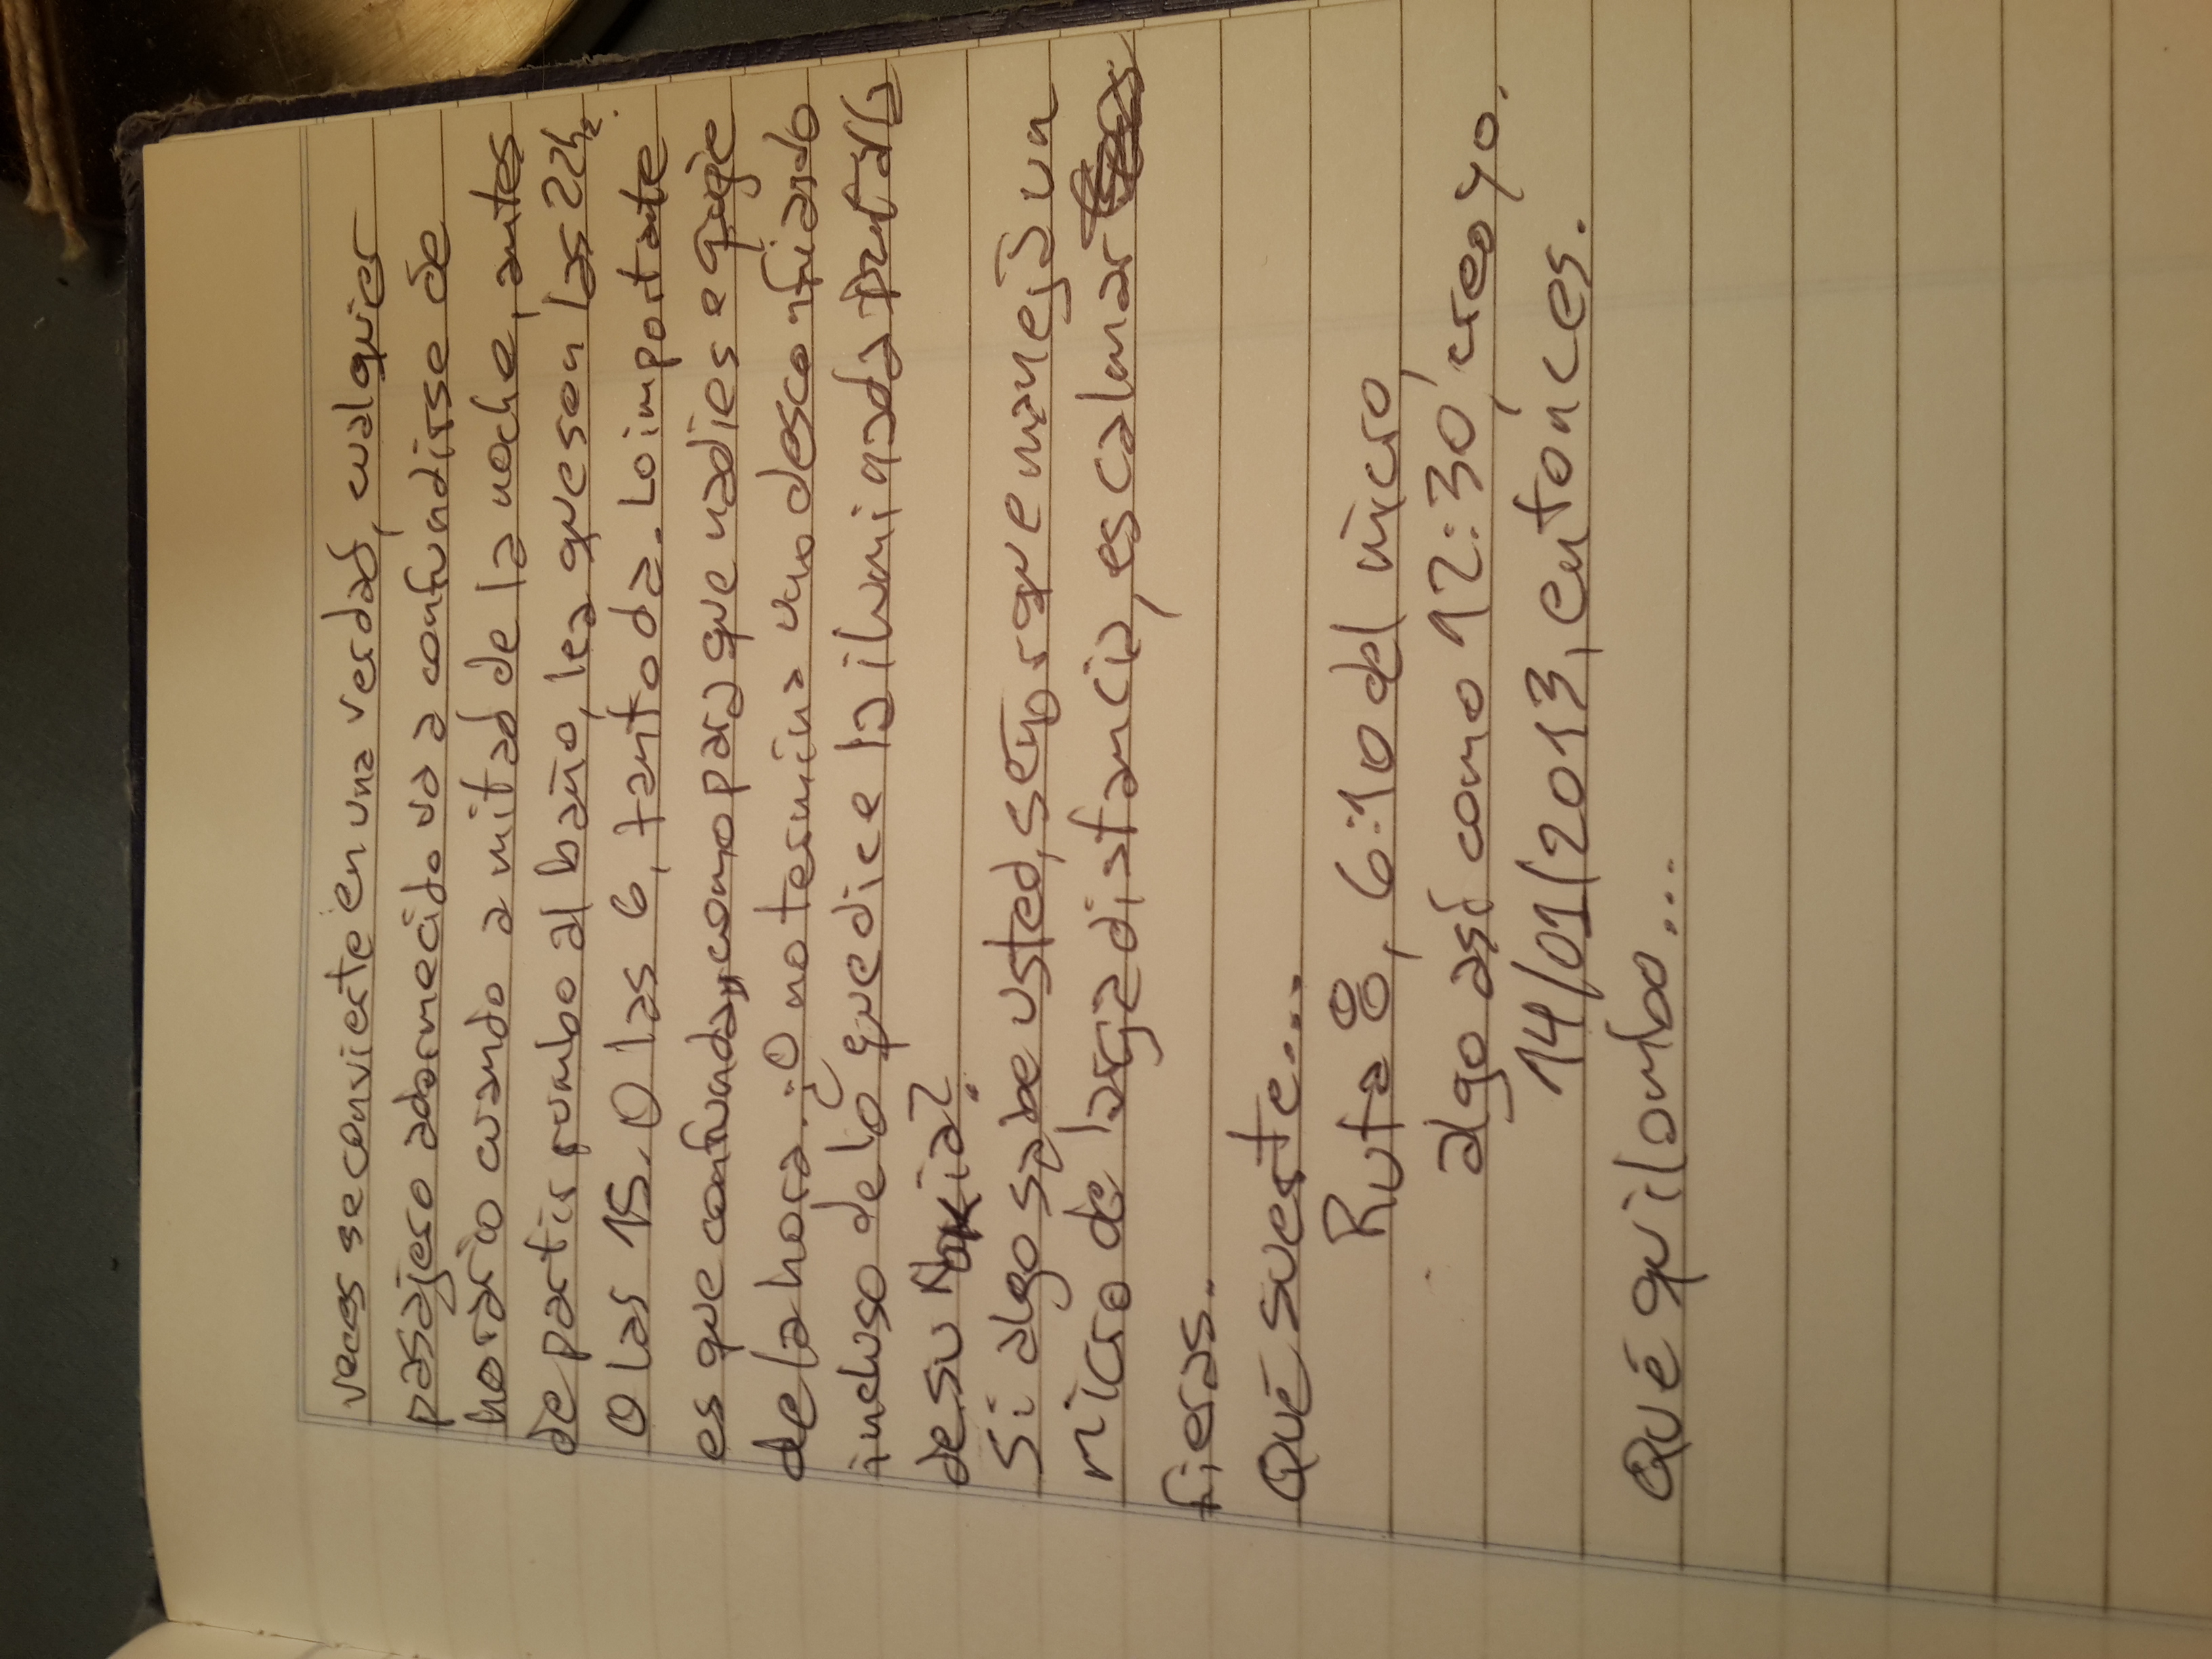 veces se convierte en una verdad, cualquier
pasajero adormecido va a confundirse de
horario cuando a mitad de la noche, antes
de partir rumbo al baño, lea que son las 22h.
O las 15. O las 6, tanto da. Lo importate
es que confunda, como para que nadie se queje
de la hora. ¿O no termina uno desconfiando
incluso de lo que dice la iluminada pantalla
de su Nokia?
Si algo sabe usted, señor que maneja un
micro de larga distancia, es calmar
fieras.
Qué suerte...
Ruta 8, 6:10 del micro,
algo así como 12:30, creo yo.
14/01/2013, entonces.
Qué quilombo...